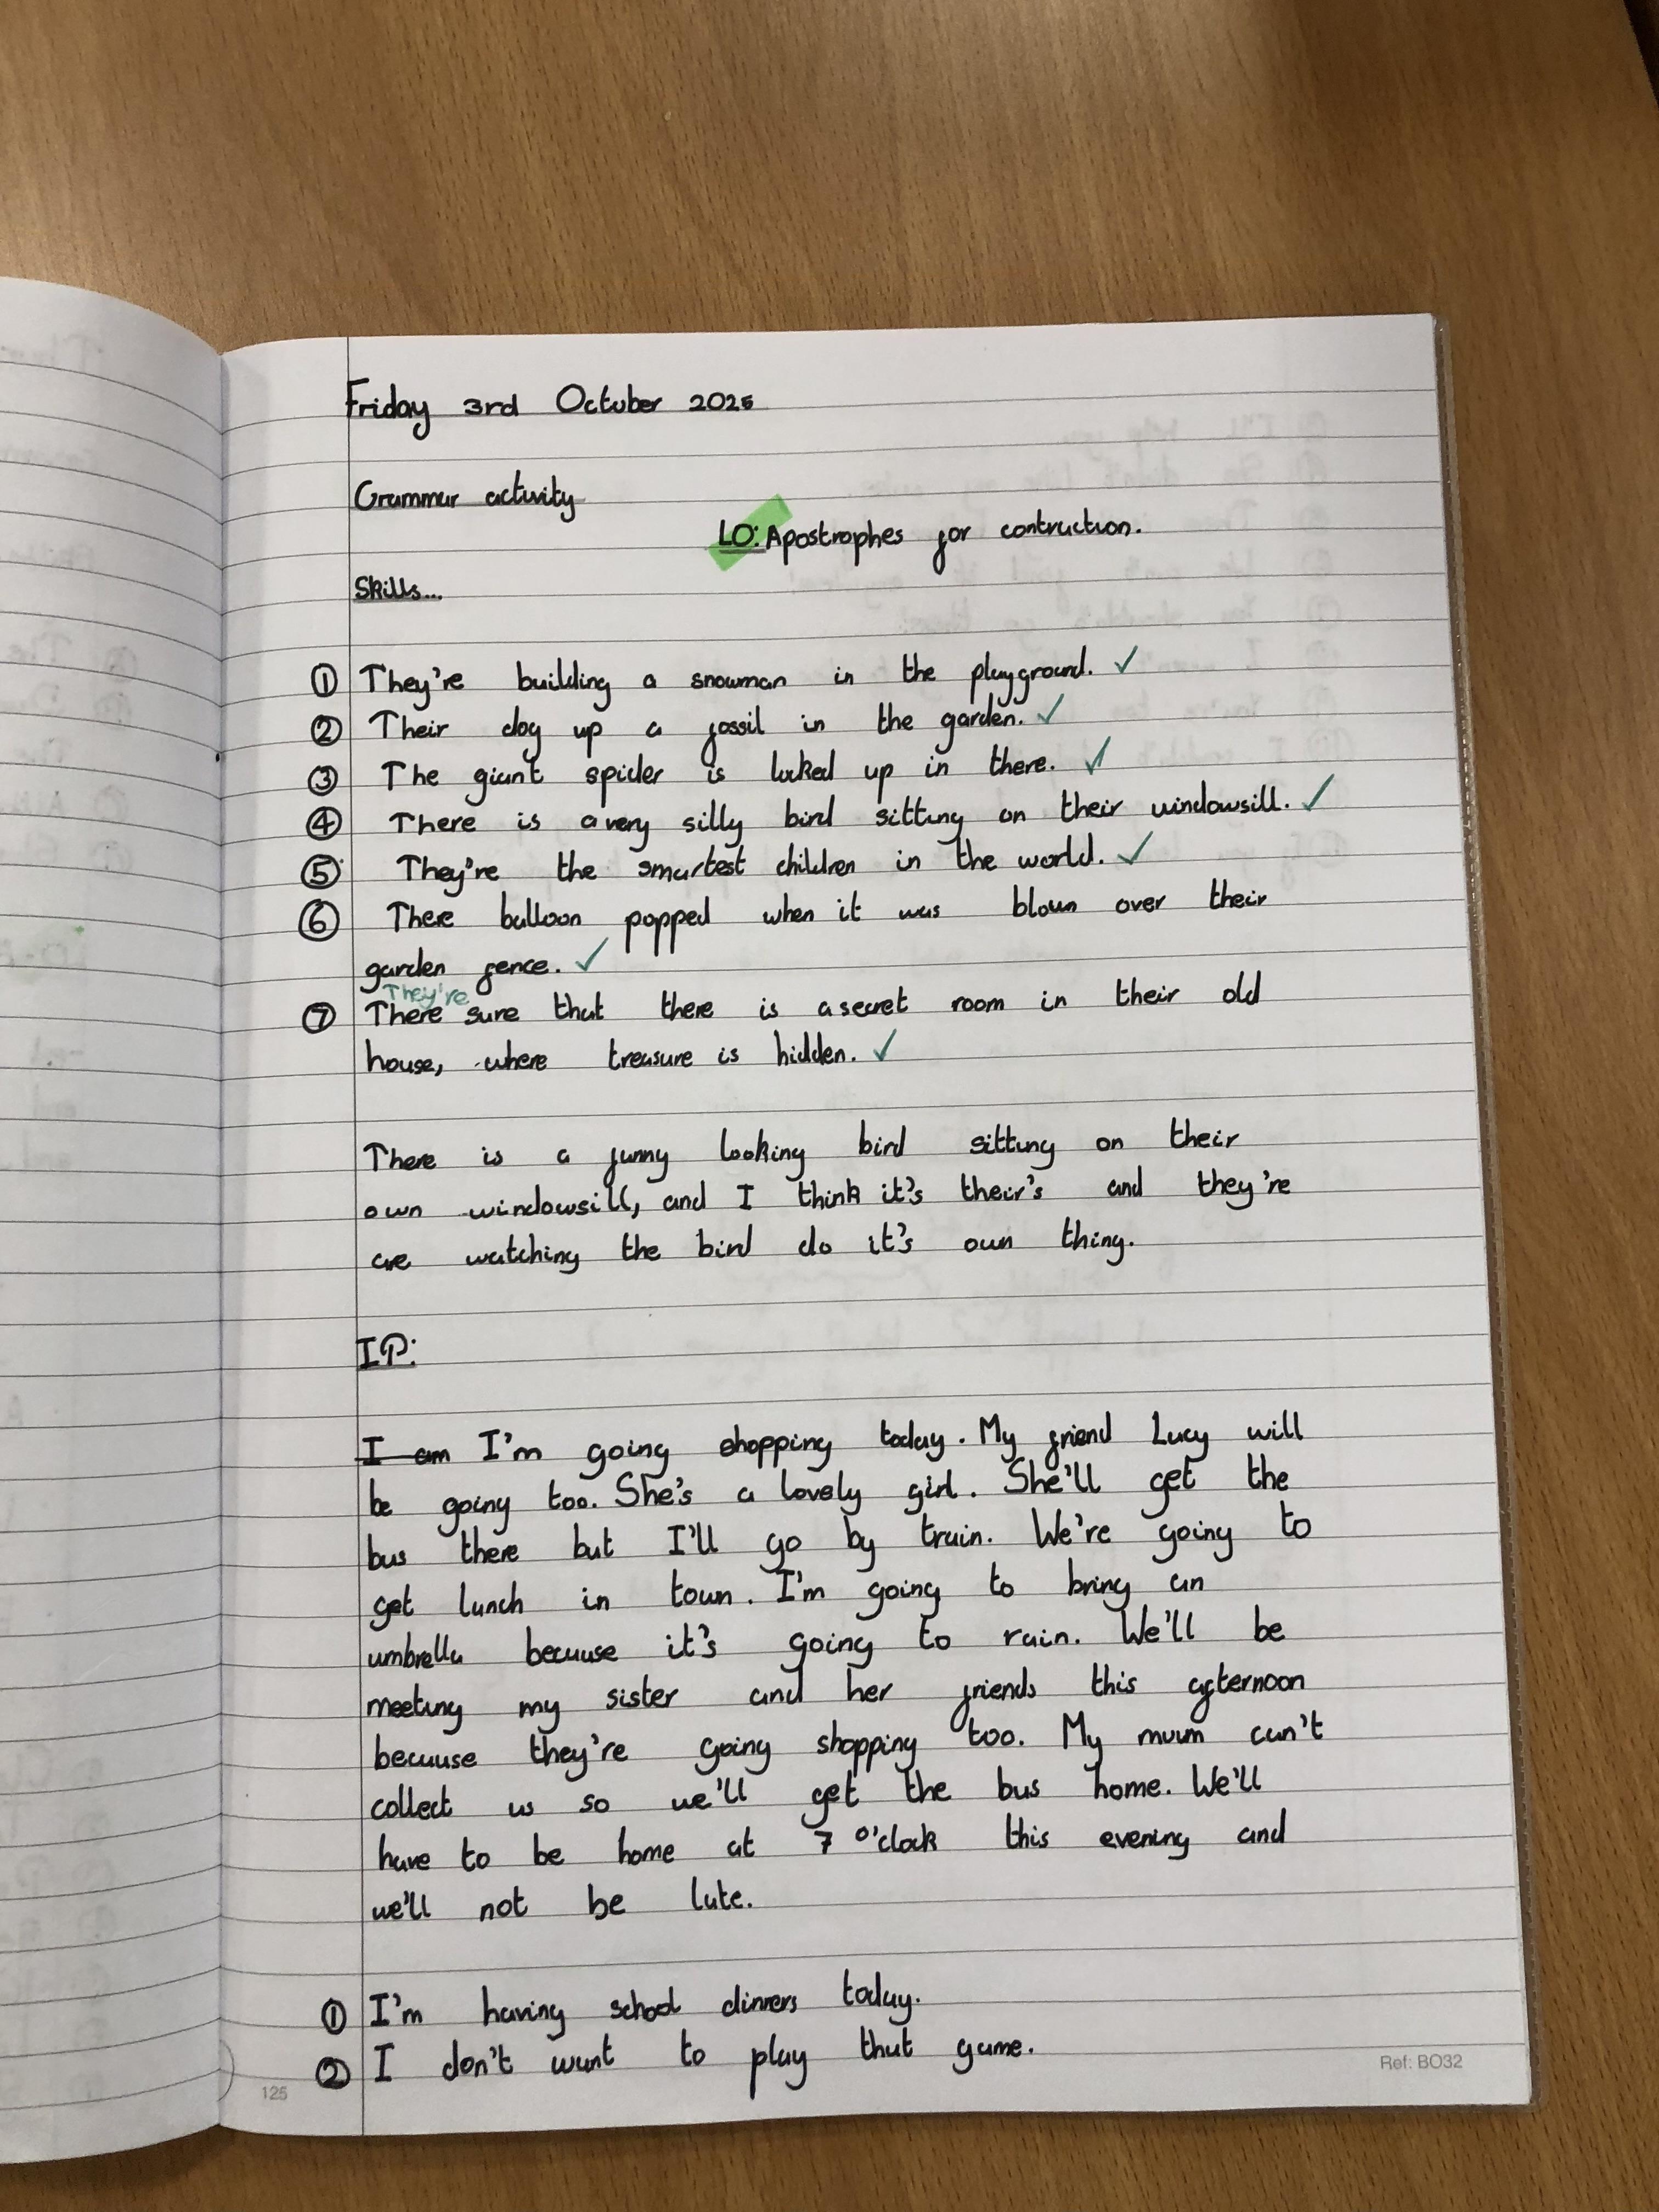 Friday 3rd October 2025
Grammar activity
LO: Apostrophes for contraction.
Skills...
① They're building a snowman in the playground. ✓
② Their dog up a fossil in the garden. ✓
③ The giant spider is locked up in there. ✓
④ There is a very silly bird sitting on their windowsill. ✓
⑤ They're the smartest children in the world. ✓
⑥ There balloon popped when it was blown over their
garden fence. ✓
They're
⑦ There sure that there is a secret room in their old
house, where treasure is hidden. ✓
There is a funny looking bird sitting on their
own windowsill, and I think it's their's and they're
are watching the bird do it's own thing.
IP:
I am I'm going shopping today. My friend Lucy will
be going too. She's a lovely girl. She'll get the
bus there but I'll go by train. We're going to
get lunch in town. I'm going to bring an
umbrella because it's going to rain. We'll be
meeting my sister and her friends this afternoon
because they're going shopping too. My mum can't
collect us so we'll get the bus home. We'll
have to be home at 7 o'clock this evening and
we'll not be late.
① I'm having school dinners today.
② I don't want to play that game.
125
Ref: BO32